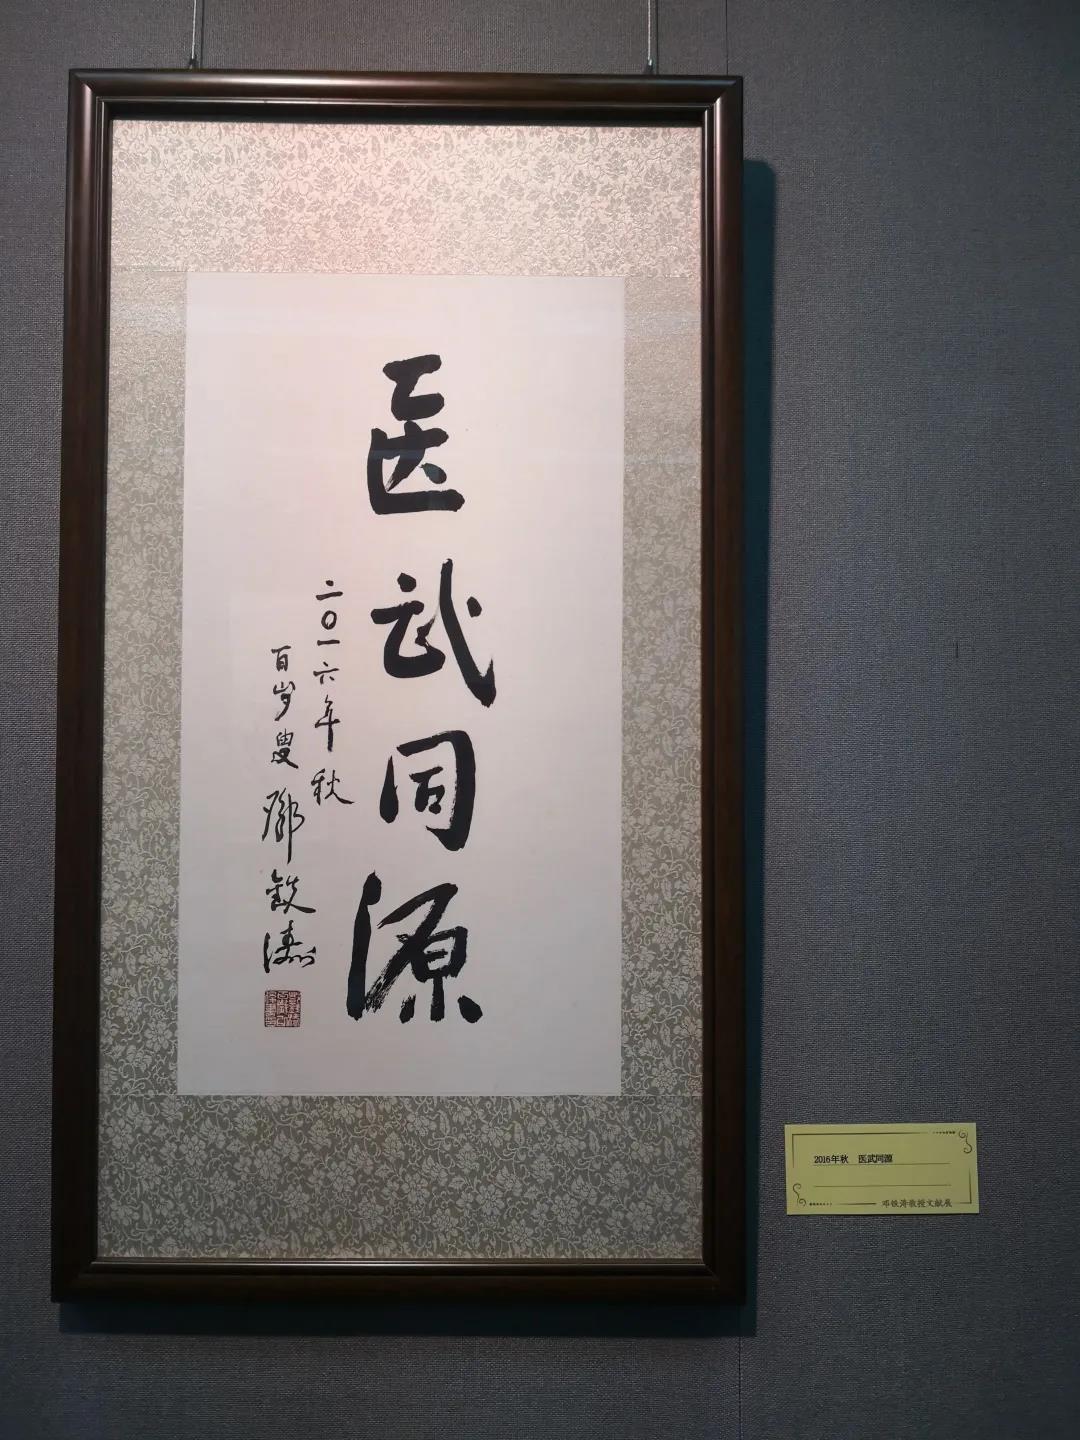 医武同源
二〇一六年秋
百岁叟邓铁涛
2016年秋 医武同源
邓铁涛教授文献展